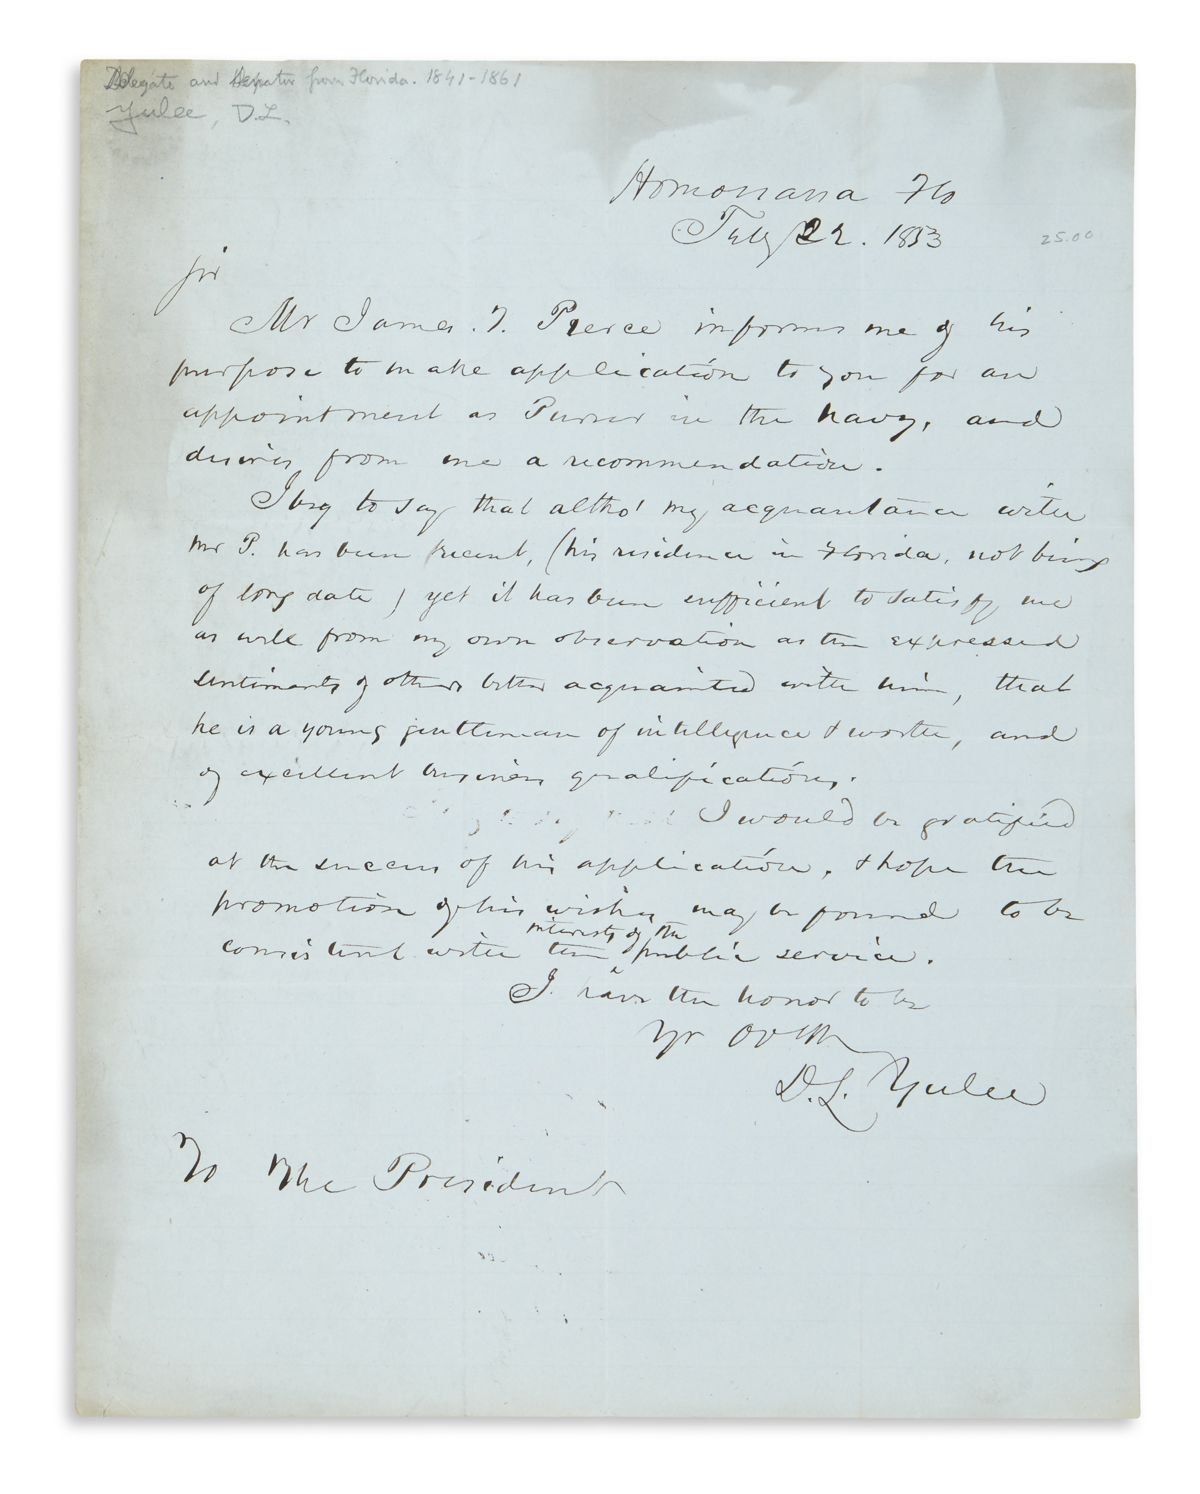 Delegate and Senator from Florida. 1841-1861
Yulee, D.L.
Homosassa Flo
July 22. 1853
25.00
Sir
Mr James. T. Pierce informs me of his
purpose to make application to you for an
appointment as Purser in the Navy, and
desires from me a recommendation.
I beg to say that altho' my acquantance with
Mr P. has been recent, (his residence in Florida, not being
of long date) yet it has been sufficient to satisfy me
as well from my own observation as the expressed
sentiments of others better acquainted with him, that
he is a young gentleman of intelligence & worth, and
of excellent business qualifications.
I would be gratified
at the success of his application, & hope the
promotion of his wishes may be found to be
interests of the
consistent with the public service.
I have the honor to be
Yr
D.L. Yulee
To The President